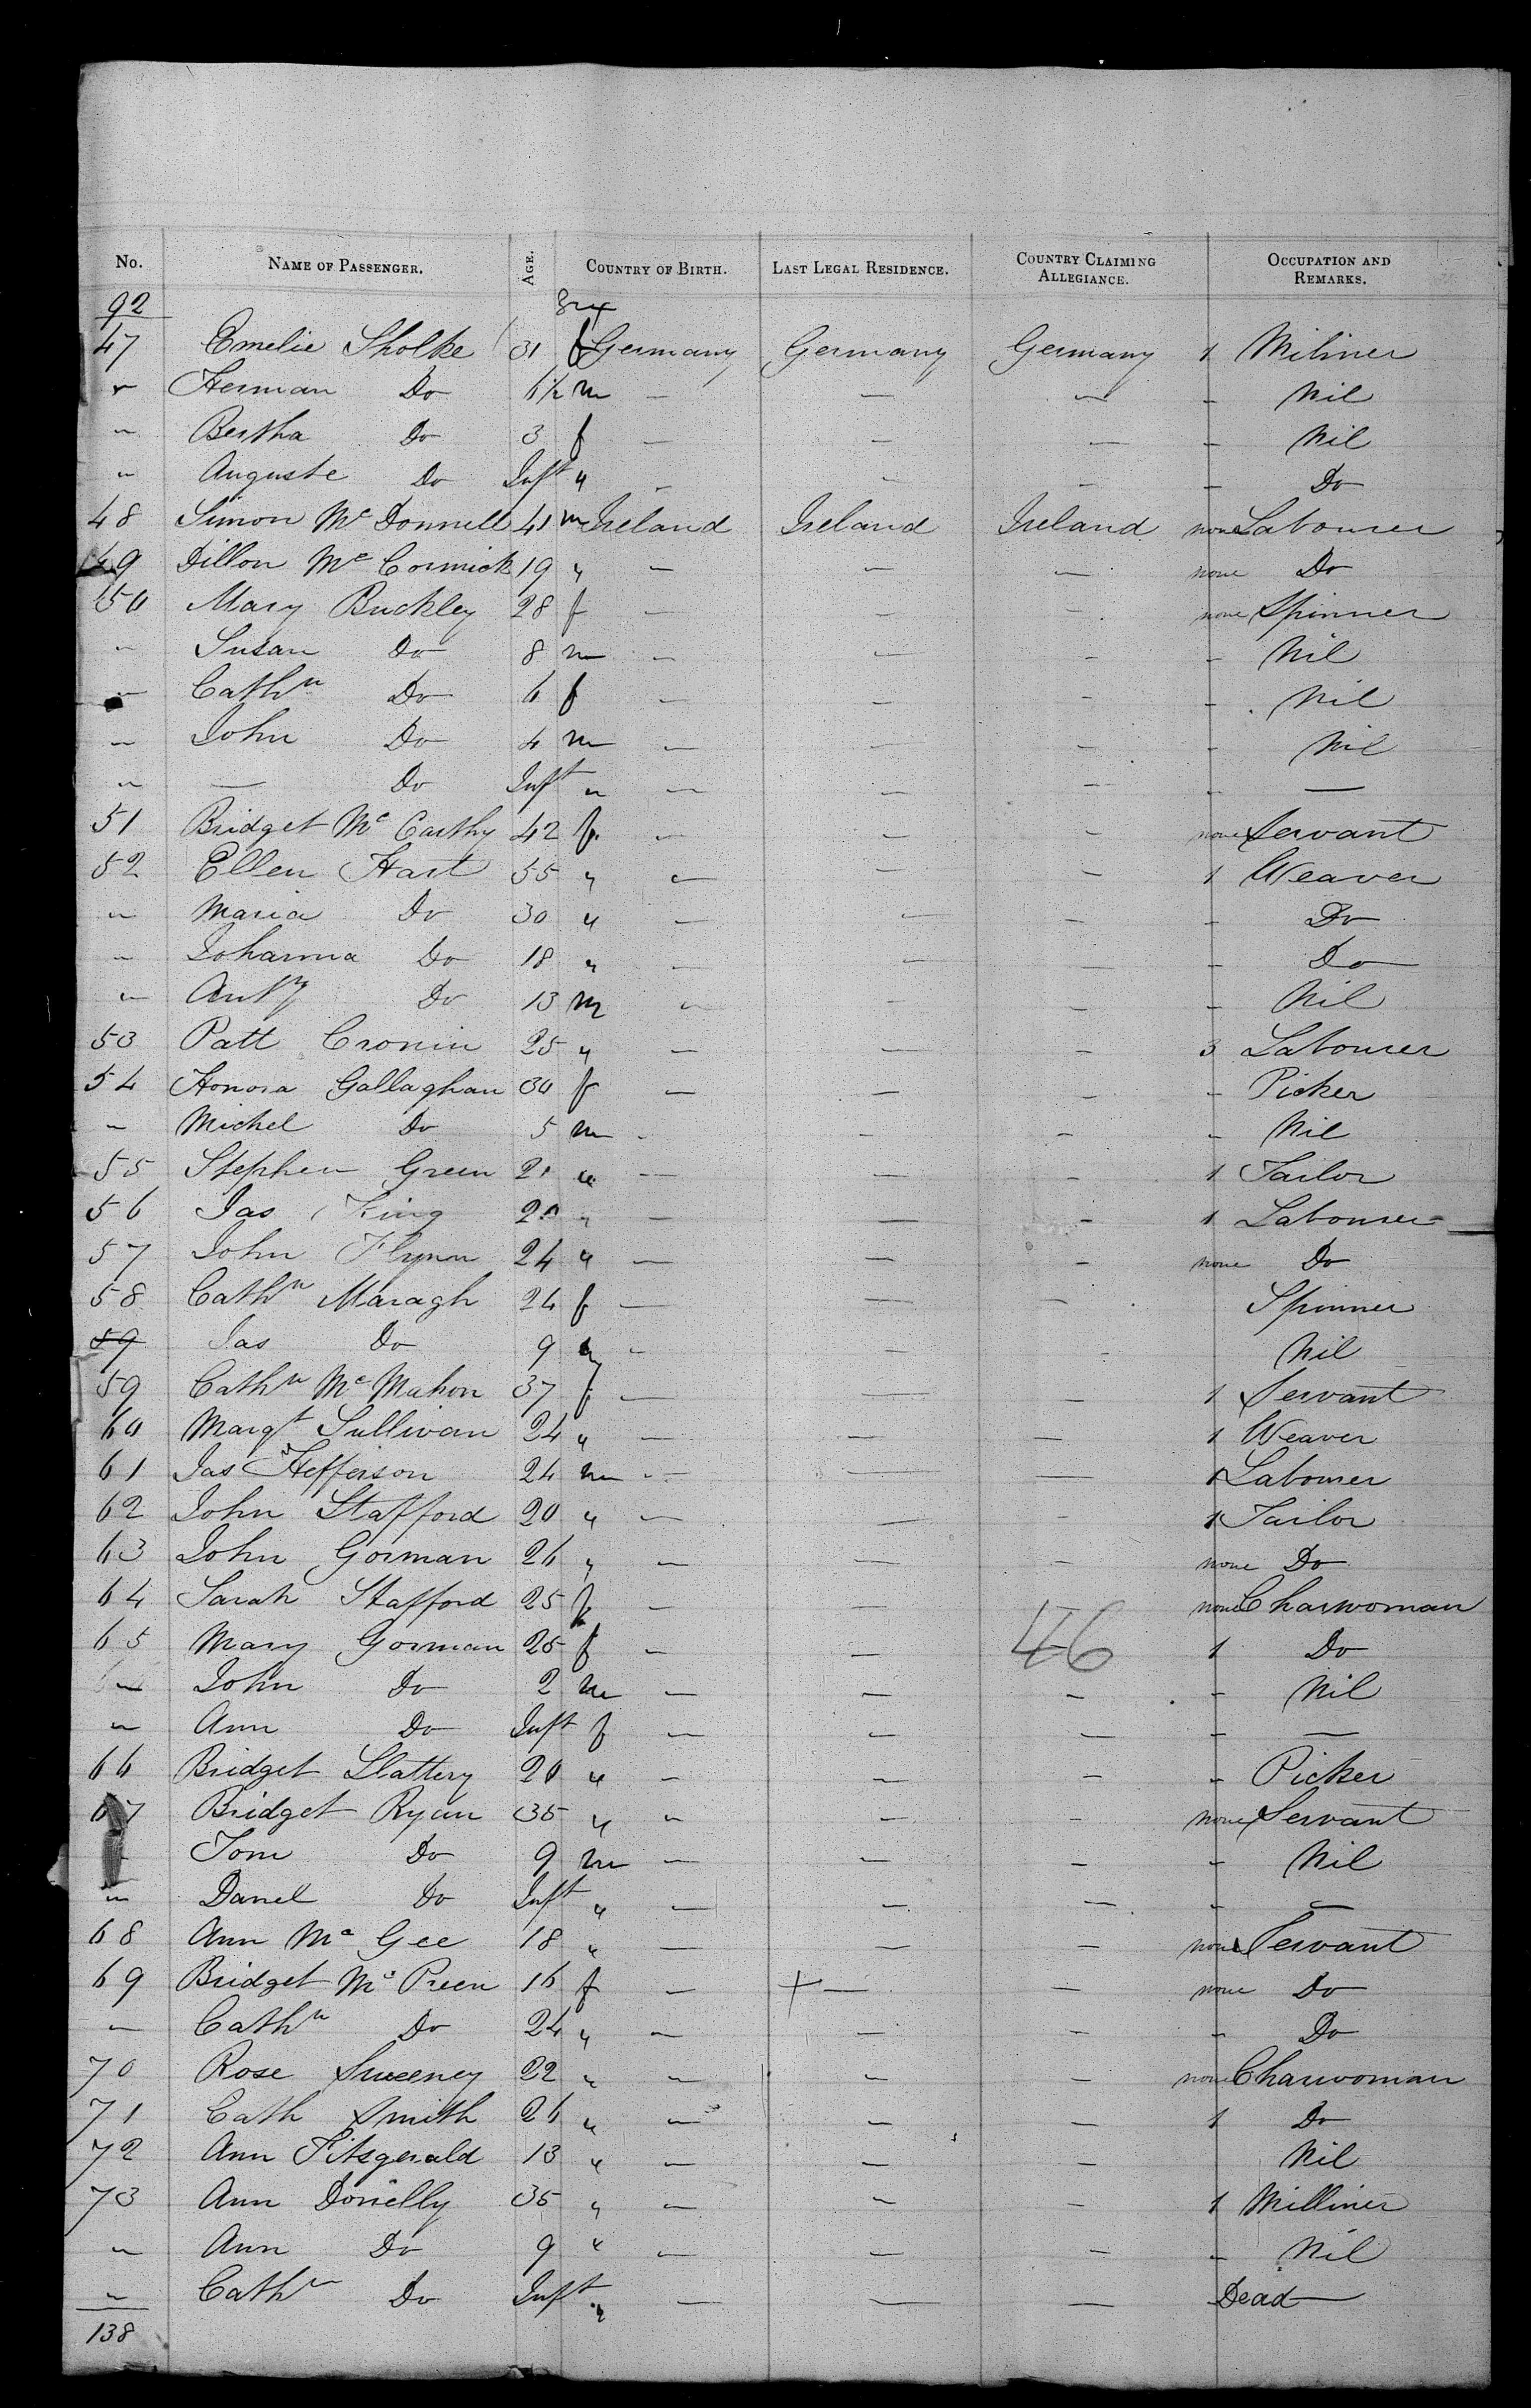 No. NAME OF PASSENGER. AGE. COUNTRY OF BIRTH. LAST LEGAL RESIDENCE. COUNTRY CLAIMING ALLEGIANCE. OCCUPATION AND REMARKS.
92 Sex
47 Emelie Sholke 31 f Germany Germany Germany 1 Miliner
" Herman Do 6½ m — — — - Nil
" Bertha Do 3 f — — — - Nil
" Auguste Do Inft " — — — - Do
48 Simon Mc Donnell 41 m Ireland Ireland Ireland none Labourer
49 Dillon Mc Cormick 19 " — — — none Do
50 Mary Buckley 28 f — — — none Spinner
" Susan Do 8 m — — — - Nil
" Cathn Do 6 f — — — - Nil
" John Do 4 m — — — - Nil
" — Do Inft " — — — - —
51 Bridget Mc Carthy 42 f — — — none Servant
52 Ellen Hart 55 " — — — 1 Weaver
" Maria Do 30 " — — — - Do
" Johanna Do 18 " — — — - Do
" Anty Do 13 m — — — - Nil
53 Patt Cronin 25 " — — — 3 Labourer
54 Honora Gallaghan 30 f — — — - Picker
" Michel Do 5 m — — — - Nil
55 Stephen Green 21 " — — — 1 Tailor
56 Jas King 20 " — — — 1 Labourer
57 John Flynn 24 " — — — none Do
58 Cathn Maragh 24 f — — — Spinner
59 Jas Do 9 m — — — Nil
59 Cathn Mc Mahon 37 f — — — 1 Servant
60 Margt Sullivan 24 " — — — 1 Weaver
61 Jas Hefferson 24 m — — — 1 Labourer
62 John Stafford 20 " — — — 1 Tailor
63 John Gorman 26 " — — — none Do
64 Sarah Stafford 25 f — — none Charwoman
65 Mary Gorman 25 f — — 46 1 Do
" John Do 2 m — — — - Nil
" Ann Do Inft f — — — - —
66 Bridget Slattery 20 " — — — - Picker
67 Bridget Ryan 35 " — — — none Servant
" Tom Do 9 m — — — - Nil
" Danel Do Inft " — — — - —
68 Ann Mc Gee 18 " — — — none Servant
69 Bridget Mc Preen 16 f — + — — none Do
" Cathn Do 24 " — — — - Do
70 Rose Sweeney 22 " — — — none Charwoman
71 Cath Smith 26 " — — — 1 Do
72 Ann Fitsgerald 13 " — — — Nil
73 Ann Donelly 35 " — — — 1 Milliner
" Ann Do 9 " — — — - Nil
" Cathn Do Inft " — — — Dead —
138